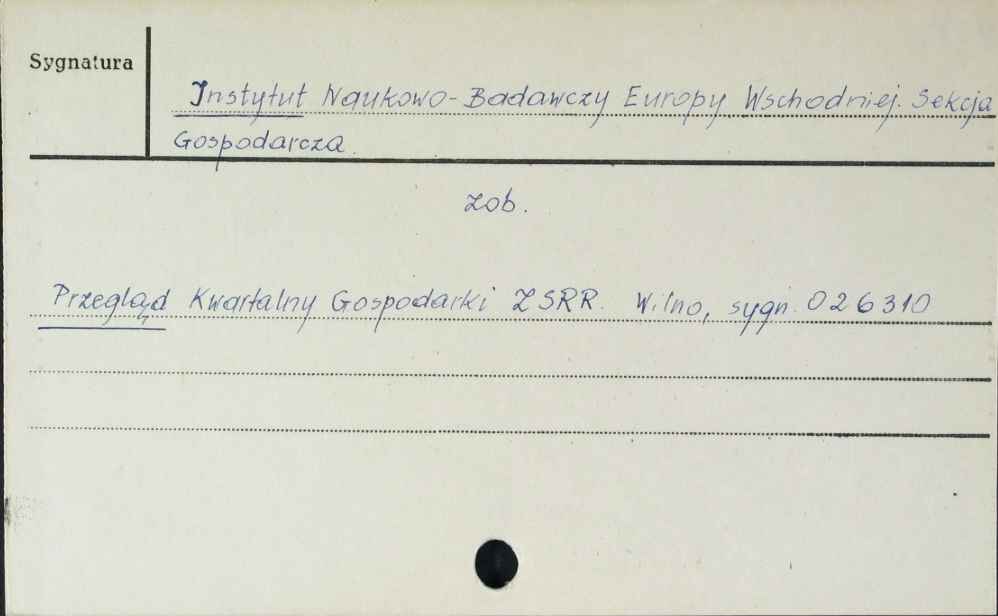 Sygnatura
Instytut Naukowo-Badawczy Europy Wschodniej. Sekcja
Gospodarcza.
zob.
Przegląd Kwartalny Gospodarki ZSRR. Wilno, sygn. 026310